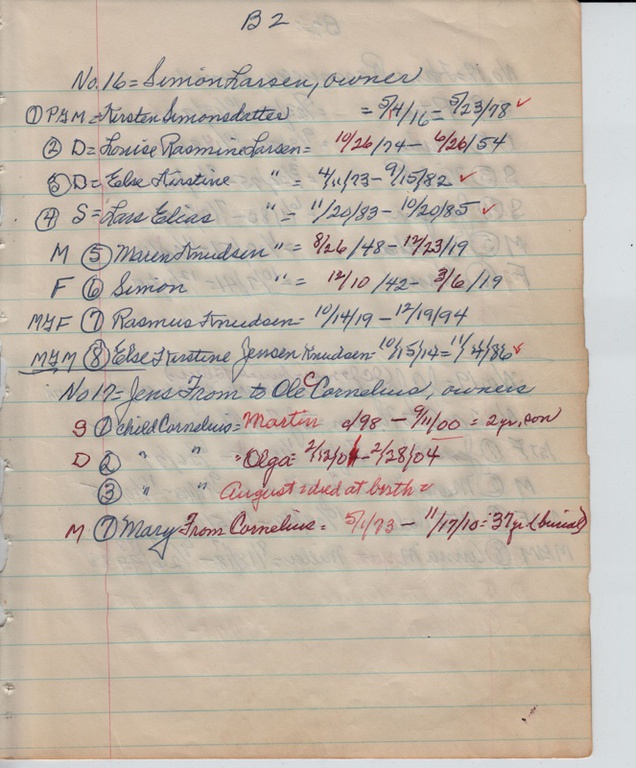 B2
No. 16 = Simon Larsen, owner
① P & M = Kirsten Simonsdatter = 5/4/16 = 5/23/78 ✓
② D = Louise Rasmine Larsen = 10/26/74 - 6/26/54
③ D = Else Kirstine " = 4/11/73 - 9/15/82 ✓
④ S = Lars Elias " = 11/20/83 - 10/20/85 ✓
M ⑤ Maren Knudsen " = 8/26/48 - 12/23/19
F ⑥ Simon " = 12/10/42 - 3/6/19
M & F ⑦ Rasmus Knudsen - 10/14/19 - 12/19/94
M & M ⑧ Else Kirstine Jensen Knudsen = 10/15/14 = 11/4/86 ✓
No 17 = Jens From to Ole C Cornelius, owners
S ① child Cornelius = Martin /98 - 9/11/00 = 2 yr, son
D ② " " = Olga = 2/12/04 - 2/28/04
③ " " August = died at birth =
M ⑦ Mary From Cornelius = 5/1/73 - 11/17/10 = 37 yr (burial)